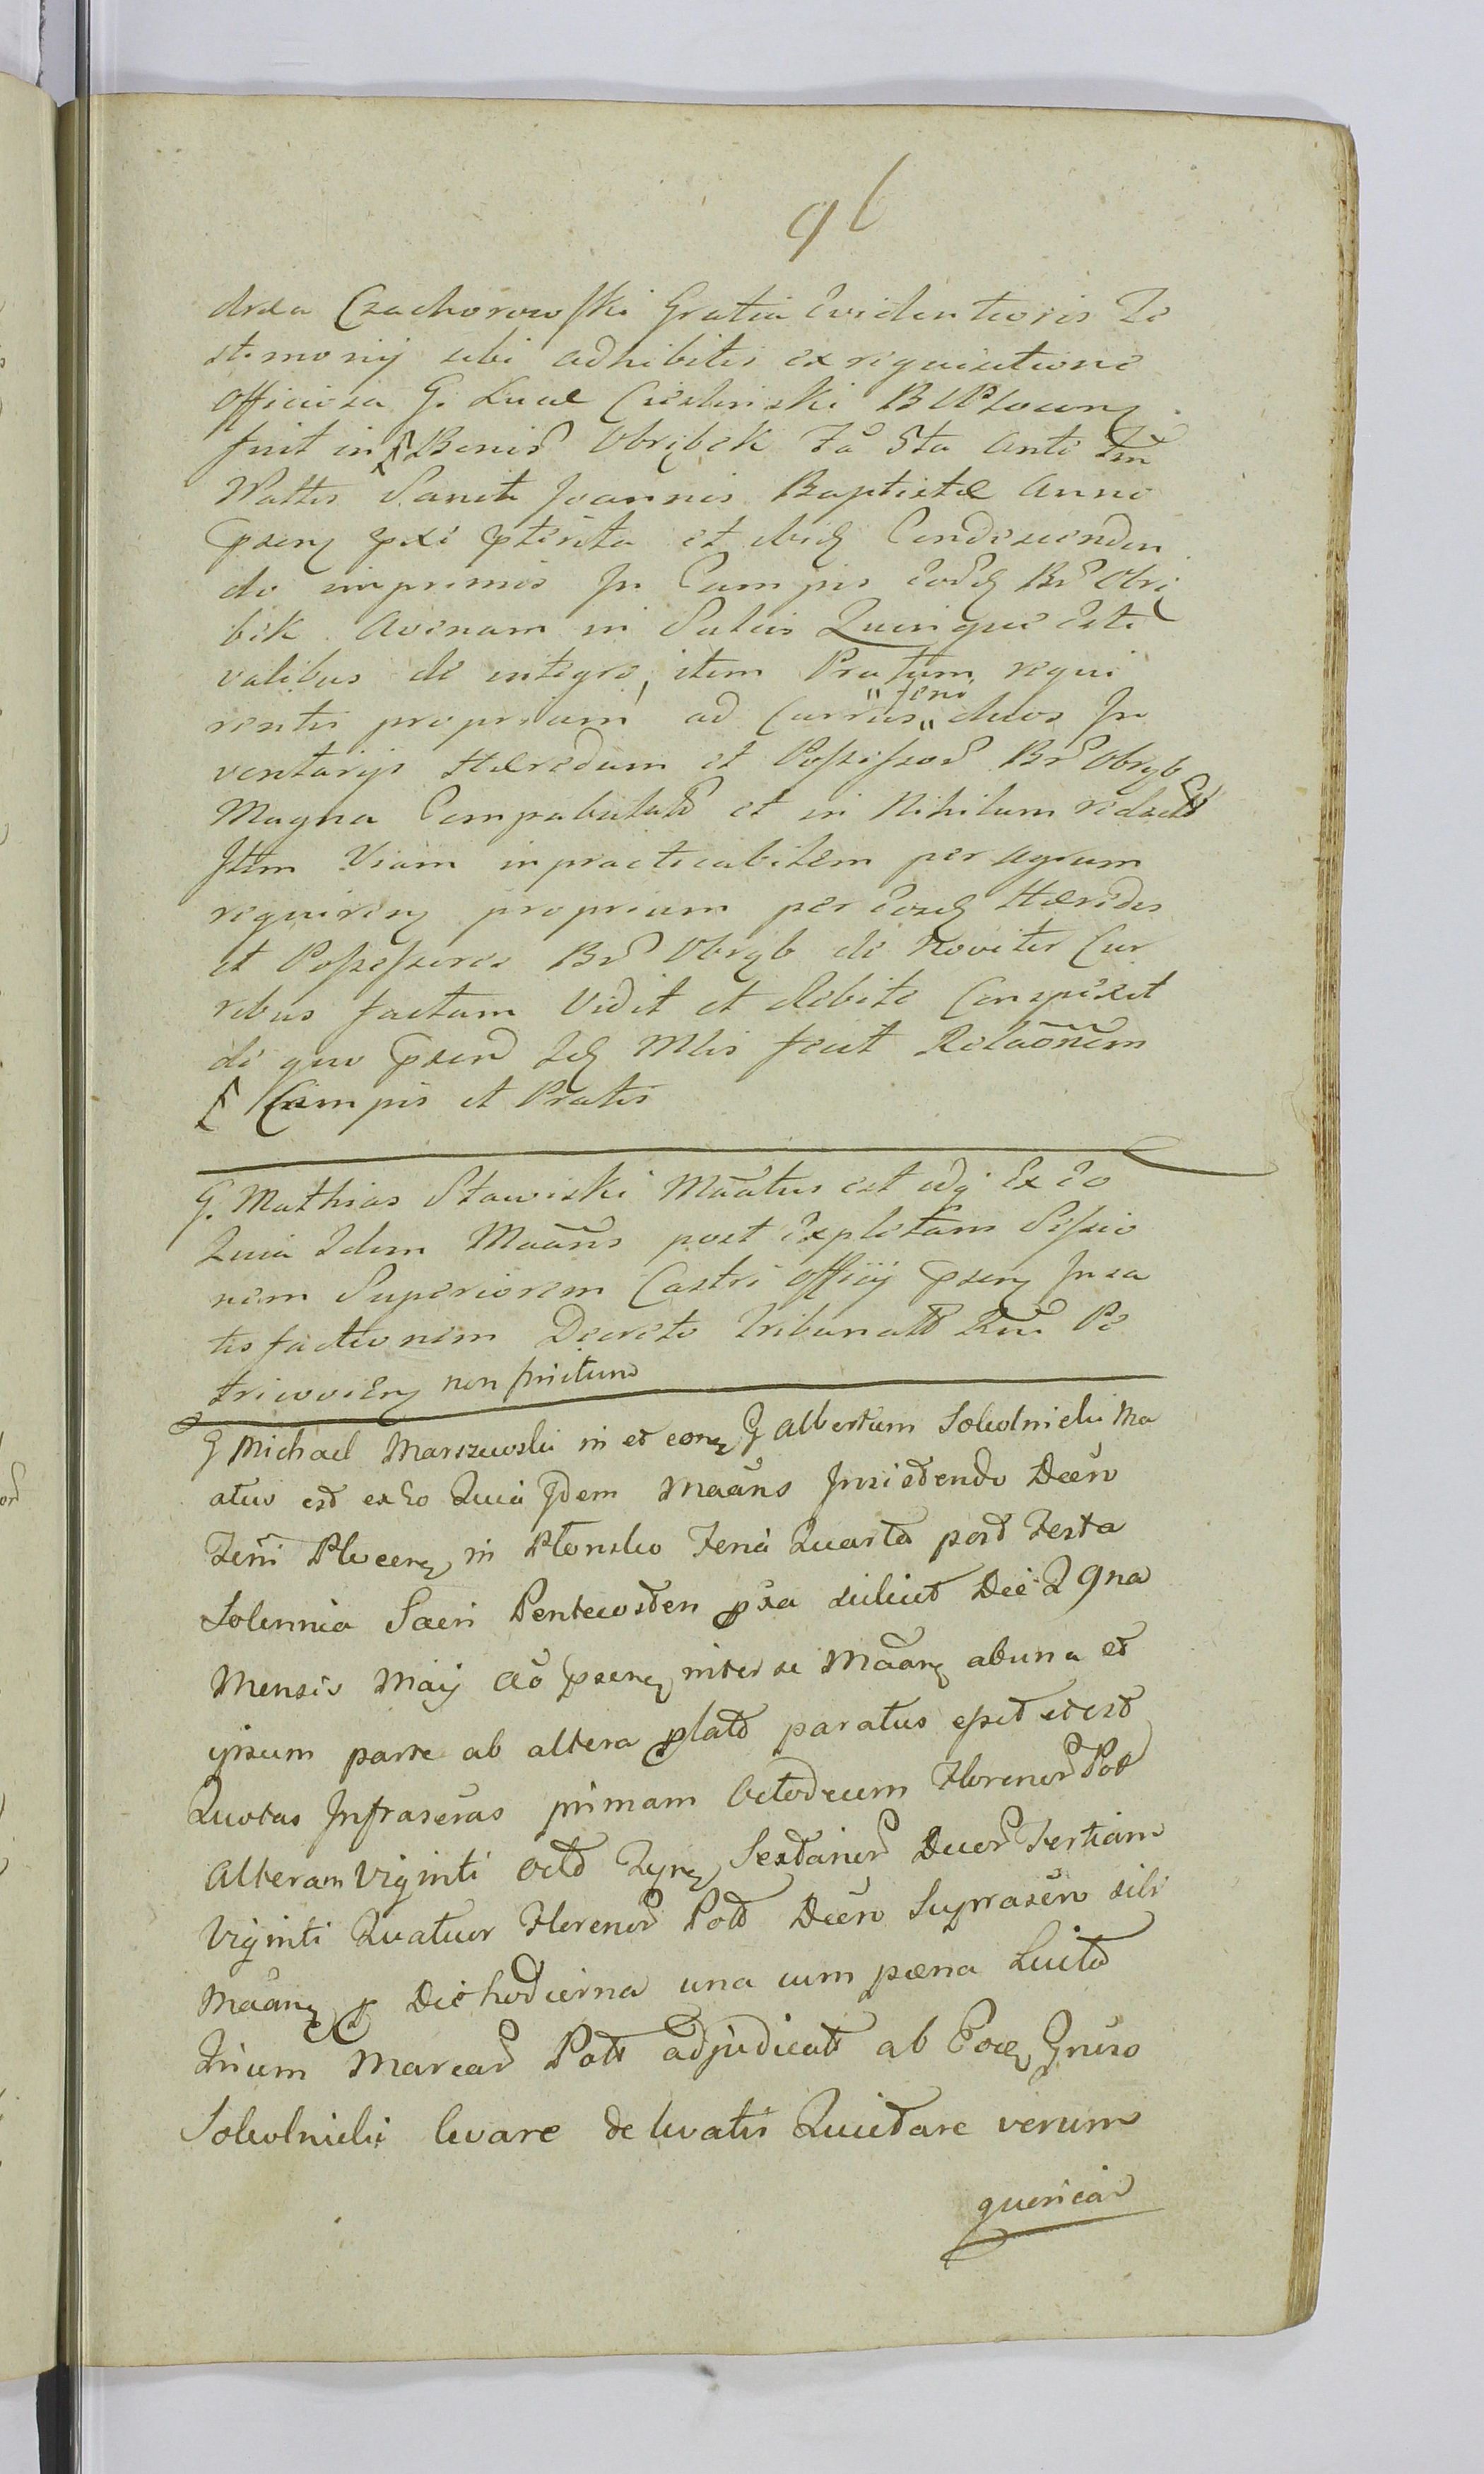 96
drea Czachorowski Gratia Evidentioris Te
stimonij sibi adhibitis ex requisitione
Officiosa G. Lucæ Ciesliński B
fuit in Bonis Obrębek Fa 5ta Ante Fm
Nattis Sancti Joannis Baptistæ Anno
psen pxi pterita et ibid Condescenden
do imprimis In Campis Eord Br Obrę
bek Avenam in Suliis Quinque esti
valibus de integro, item Pratum requi
rentis proprium ad Currus „feni„ duos In
ventarijs Hæredum et Possessor Br Obręb
Magna Compabulato et in Nihilum redact
Item Viam inpracticabilem per agrum
requiren proprium per Eosd Hæredes
et Possessores Br Obręb de Noviter Cur
ribus factam Vidit et debite Conspexit
de quo psen Id Mlis fecit Relaõnem
Campis et Pratis
G. Mathias Stawiski Maatus est idq Ex Eo
Quia Idem Maans post Expletam Sessio
nem Superiorem Castri Officij psen In sa
tisfactionem Decreto Tribunalt Rni Pe
tricovien non finitum
G Michael Marszewski in et con G Albertum Sokolnicki Ma
atus est ex Eo Quia Idem Maans Insistendo Decro
Terri Plocen in Płonsko Feria Quarta post Festa
Solennia Sacri Pentecosten pxa scilicet Die 29na
Mensis Maij Ao psen inter se Maan ab una et
ipsum parte ab altera plato paratus esset et est
Quotas Infrascras primam Octodecim Florenor Pol
Alteram Viginti Octo Tynf Sextainor Duor Tertiam
Viginti Quatuor Florenor Pol Decro Suprascro sibi
Maan p Die hodierna una cum pæna Luito
Trium Marcar Polt adjudicat ab Eod Gnuso
Sokolnicki levare de levatis Quietare verum